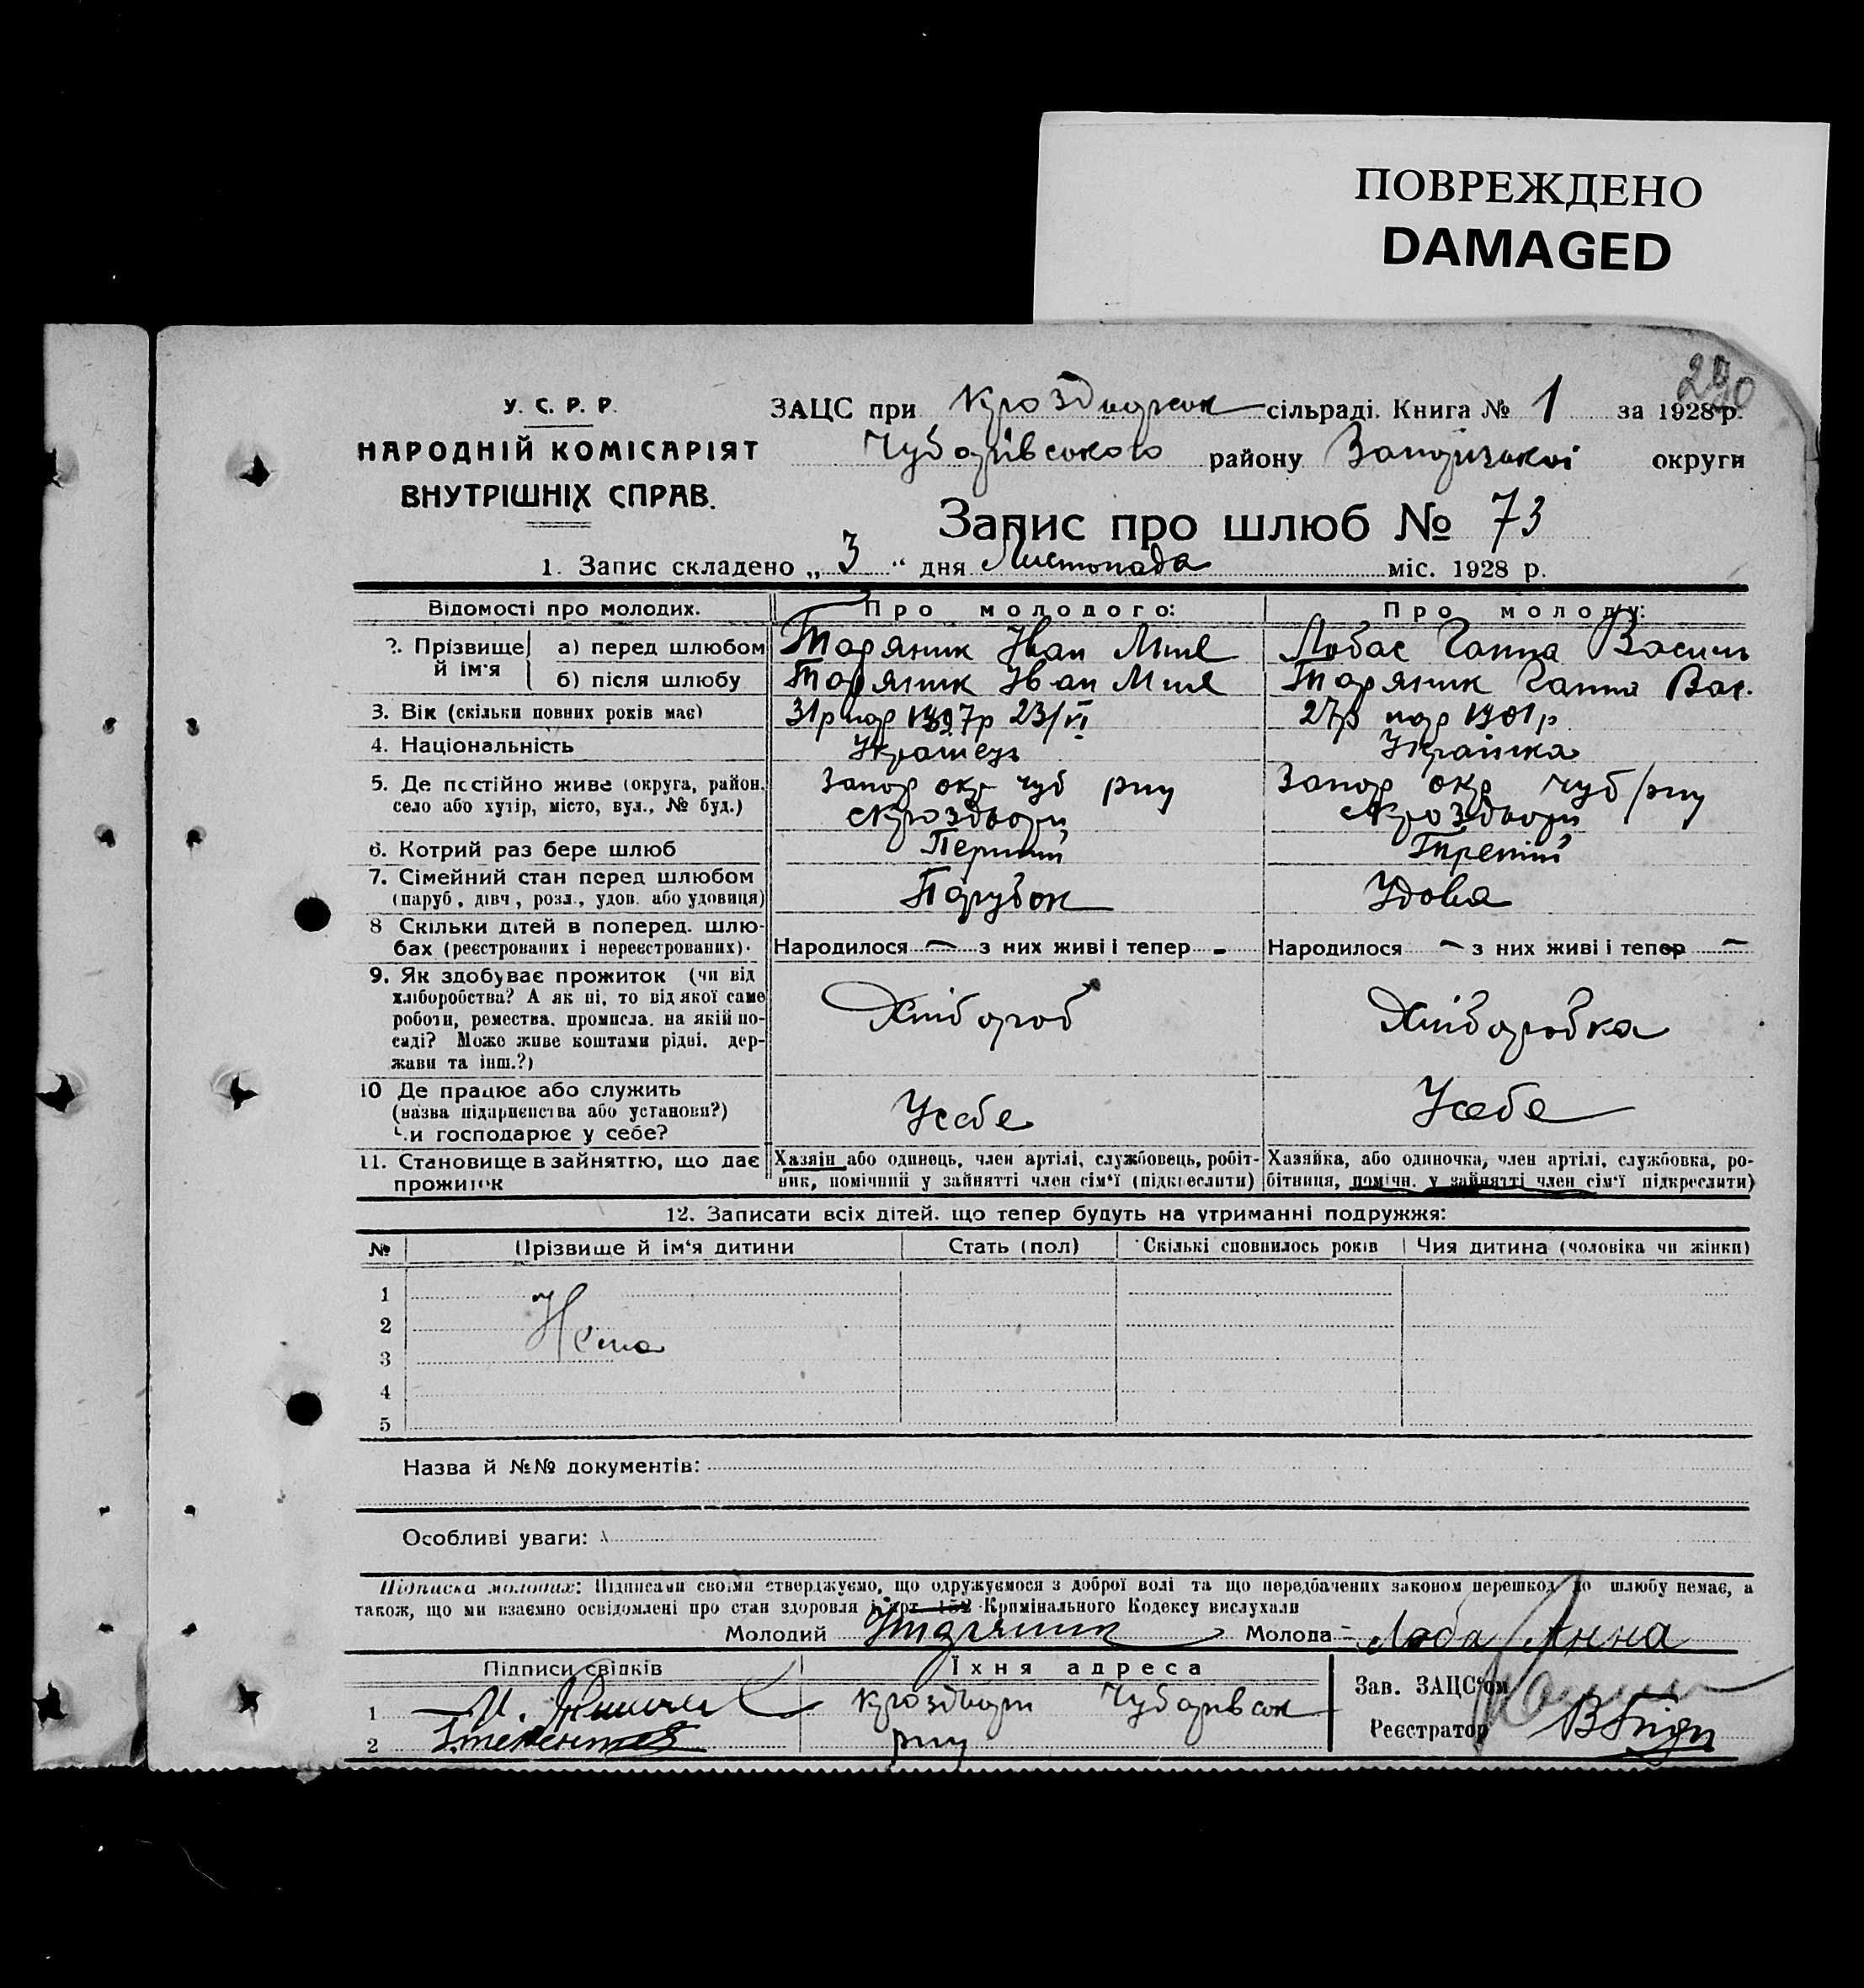 ПОВРЕЖДЕНО
DAMAGED
290
У. С. Р. Р.
НАРОДНІЙ КОМІСАРІЯТ
ВНУТРІШНІХ СПРАВ.
ЗАЦС при сільраді. Книга № 1 за 1928 р.
Чубарівського району Запорізької округи
Запис про шлюб № 73
1. Запис складено „ 3 “ дня Листопада міс. 1928 р.
Відомості про молодих. Про молодого: Про молоду:
2. Прізвище й ім'я а) перед шлюбом Таряник Іван Лобас Ганна Василь
б) після шлюбу Таряник Іван Таряник Ганна Вас.
3. Вік (скільки повних років має) 31 р нар 1897р 23/VI 27р нар 1901р
4. Національність Українець Українка
5. Де постійно живе (округа, район, Запор окр Чуб рну Запор окр Чуб/рну
село або хутір, місто, вул., № буд.)
6. Котрий раз бере шлюб Перший Третій
7. Сімейний стан перед шлюбом Парубок Удова
(паруб., дівч., розл., удов. або удовиця)
8 Скільки дітей в поперед. шлю-
бах (реєстрованих і нереєстрованих). Народилося — з них живі і тепер - Народилося — з них живі і тепер —
9. Як здобуває прожиток (чи від
хліборобства? А як ні, то від якої саме Хлібороб Хліборобка
роботи, ремества, промисла, на якій по-
саді? Може живе коштами рідні, дер-
жави та інш.?)
10 Де працює або служить
(назва підприємства або установи?) Усебе Усебе
Чи господарює у себе?
11. Становище в зайняттю, що дає Хазяїн або одинець, член артілі, службовець, робіт- Хазяйка, або одиночка, член артілі, службовка, ро-
прожиток ник, помічний у зайнятті член сім'ї (підкреслити) бітниця, помічн. у зайнятті член сім'ї підкреслити)
12. Записати всіх дітей, що тепер будуть на утриманні подружжя:
№ Прізвище й ім'я дитини Стать (пол) Скількі сповнилось років Чия дитина (чоловіка чи жінки)
1
2 Нема
3
4
5
Назва й №№ документів:
Особливі уваги:
Підписка молодих: Підписами своїми стверджуємо, що одружуємося з доброї волі та що передбачених законом перешкод до шлюбу немає, а
також, що ми взаємно освідомлені про стан здоровля і арт. 152 Кримінального Кодексу вислухали
Молодий Молода Лоба Анна
Підписи свідків Їхня адреса
Зав. ЗАЦС'ом
1 Чубарівськ
Реєстратор
2 рну